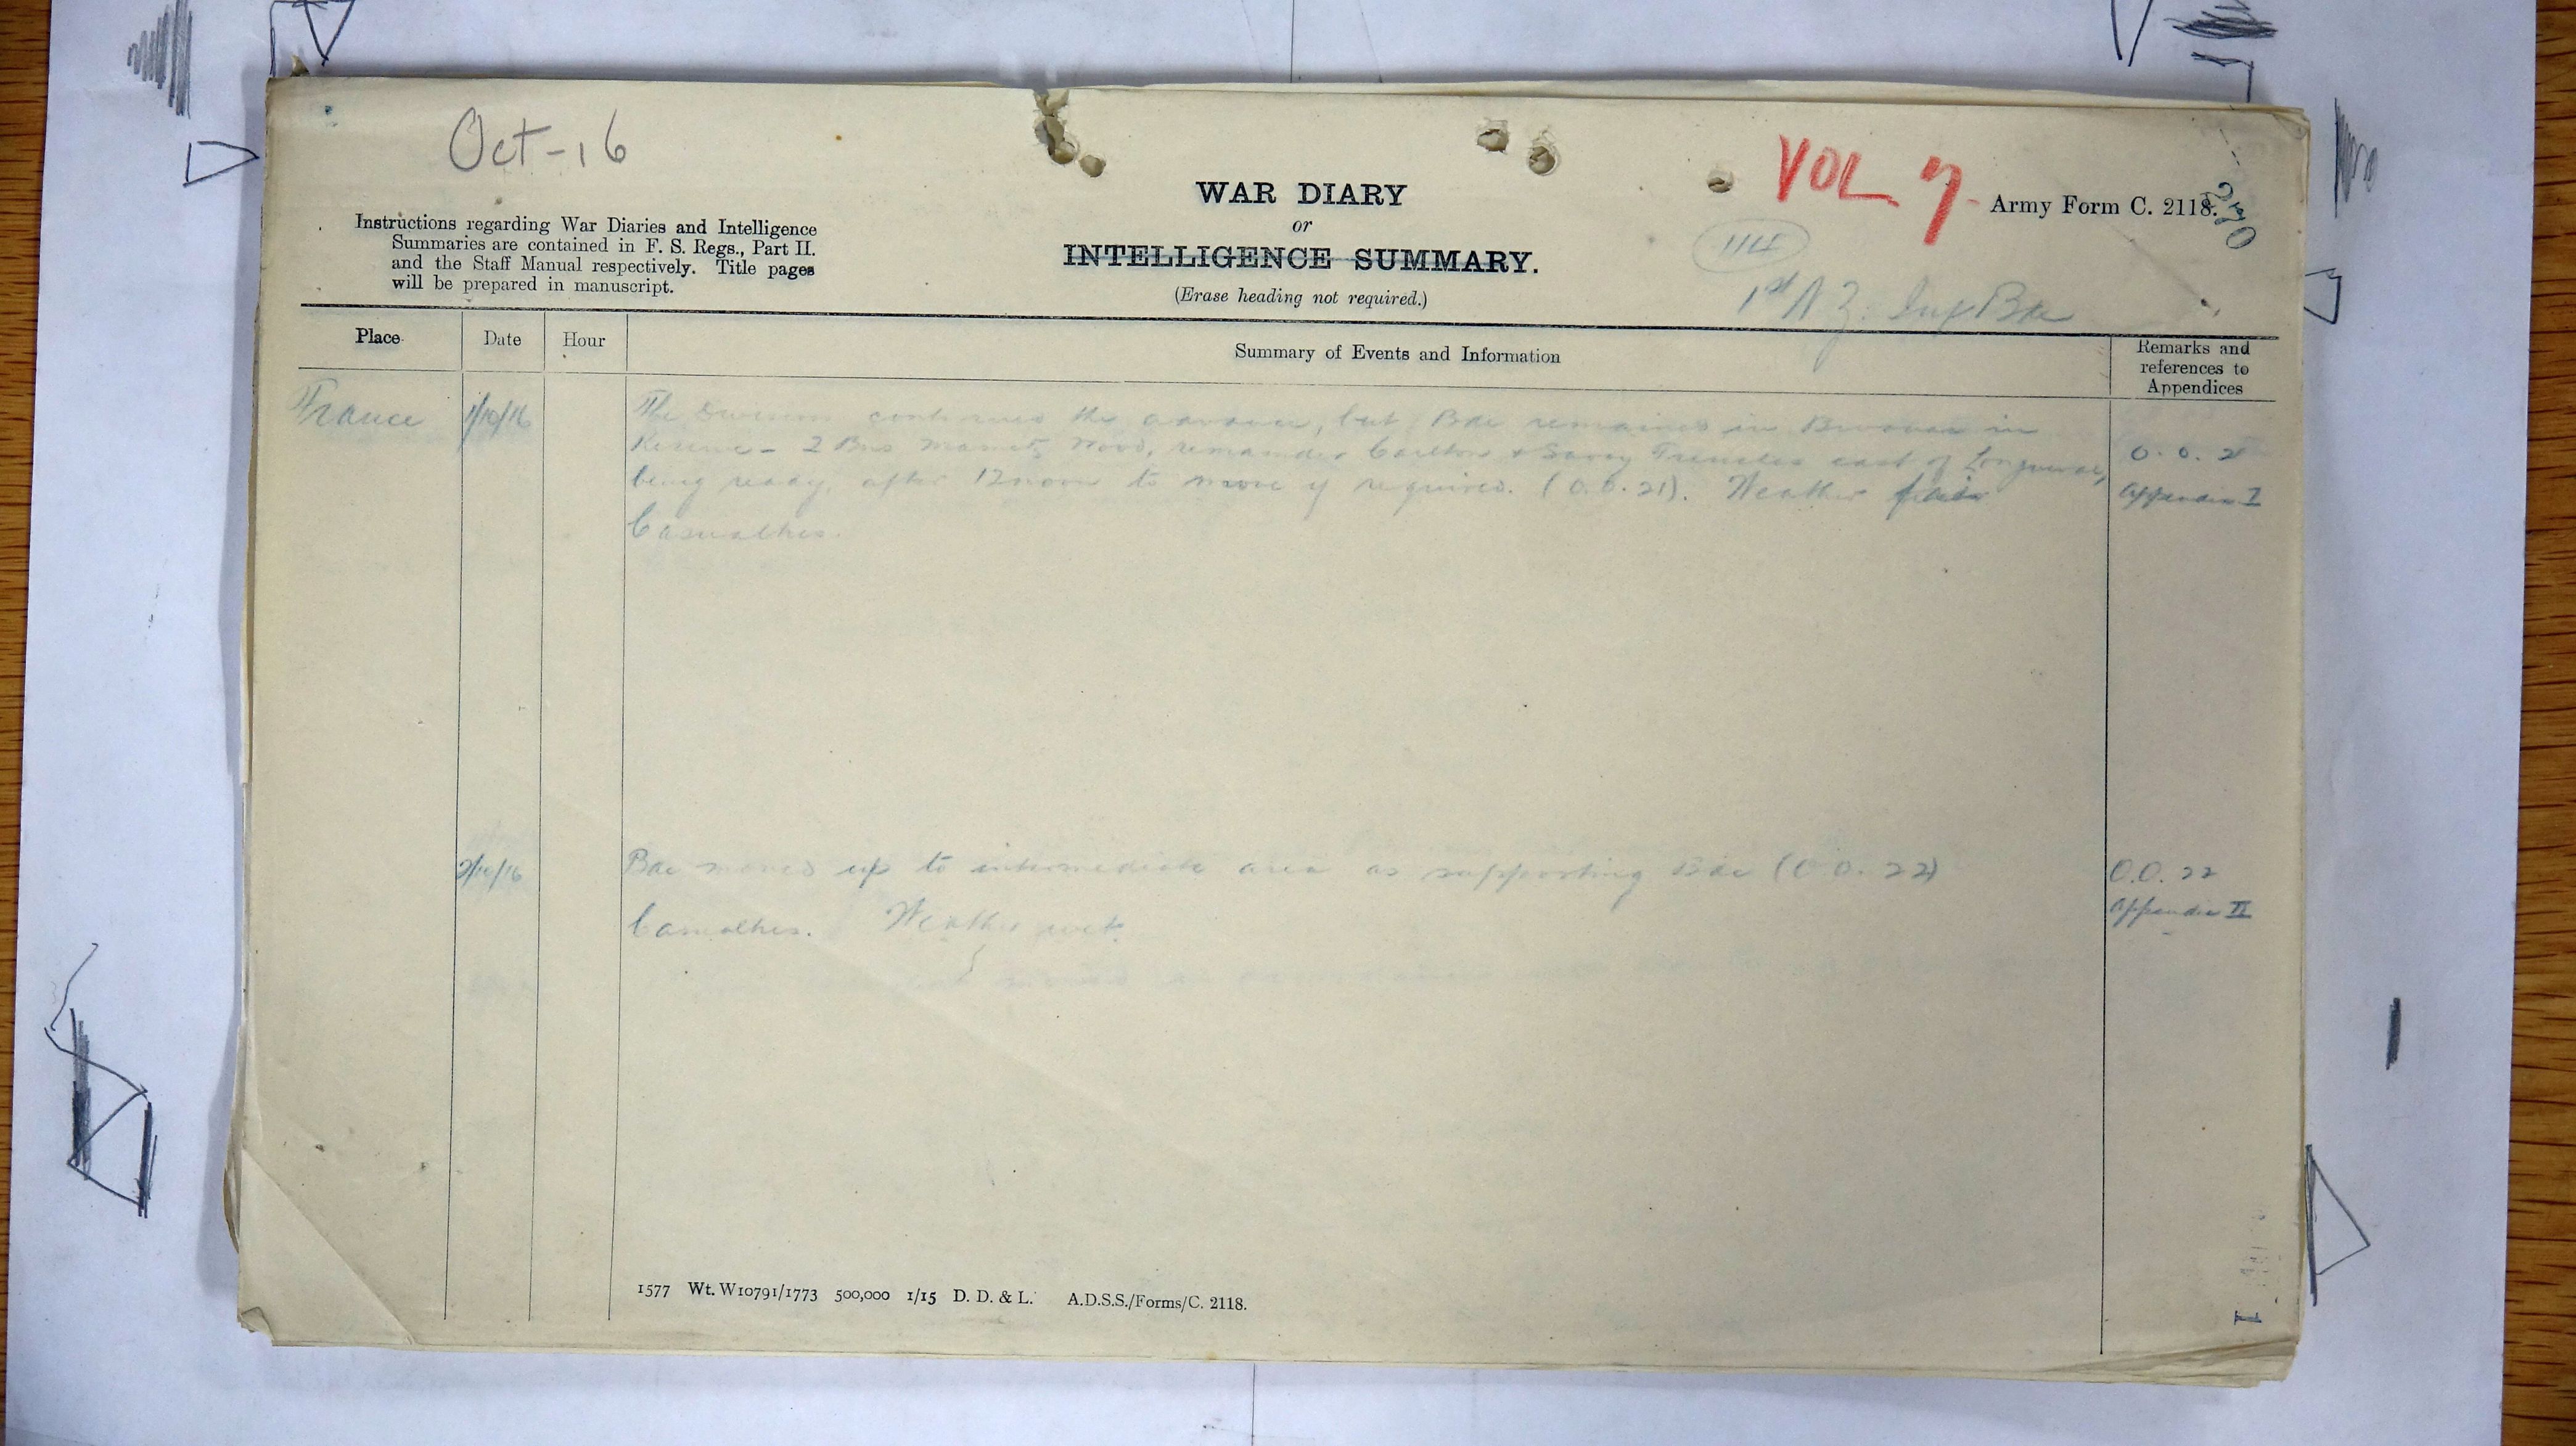 Oct-16
VOL 7
WAR DIARY
or
INTELLIGENCE SUMMARY.
(Erase heading not required.)
Army Form C. 2118.
Instructions regarding War Diaries and Intelligence
Summaries are contained in F. S. Regs., Part II.
and the Staff Manual respectively. Title pages
will be prepared in manuscript.
114
1st N Z. Inf Bde
Place Date Hour Summary of Events and Information Remarks and
references to
Appendices
France 1/10/16 The Division continues the advance, but Bde remains in Bivouac in
Reserve - 2 Bns Mametz Wood, remainder Carlton & Savoy Trenches east of Longueval,
being ready, after 12 noon to move if required. (O.O. 21). Weather fair
Casualties.
O. O. 21
Appendix I
2/10/16 Bde moved up to intermediate area as supporting Bde (O O. 22)
Casualties. Weather wet.
O.O. 22
Appendix II
1577 Wt. W10791/1773 500,000 1/15 D. D. & L. A.D.S.S./Forms/C. 2118.
1